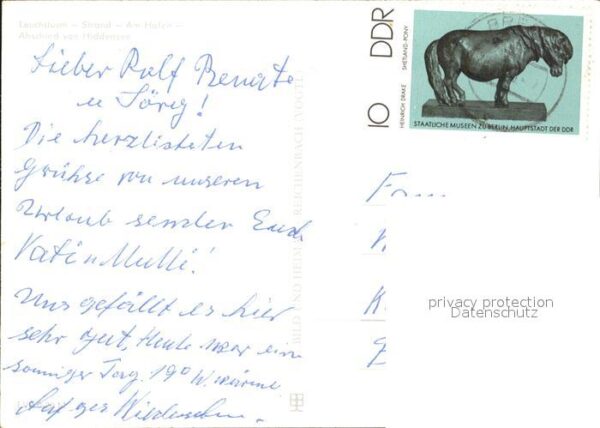 Leuchtturm – Strand – Am Hafen –
Abschied von Hiddensee
Lieber Ralf Renate
u Jörg!
Die herzlichsten
Grüße von unseren
Urlaub senden Euch
Vati u Mutti!
Uns gefällt es hier
sehr gut, Heute war ein
sonniger Tag. 19° Wärme
Auf Wiedersehn.
BILD UND HEIMAT REICHENBACH (VOGTL
DDR
10
HEINRICH DRAKE SHETLAND-PONY
STAATLICHE MUSEEN ZU BERLIN, HAUPTSTADT DER DDR
Fa...
privacy protection
Datenschutz